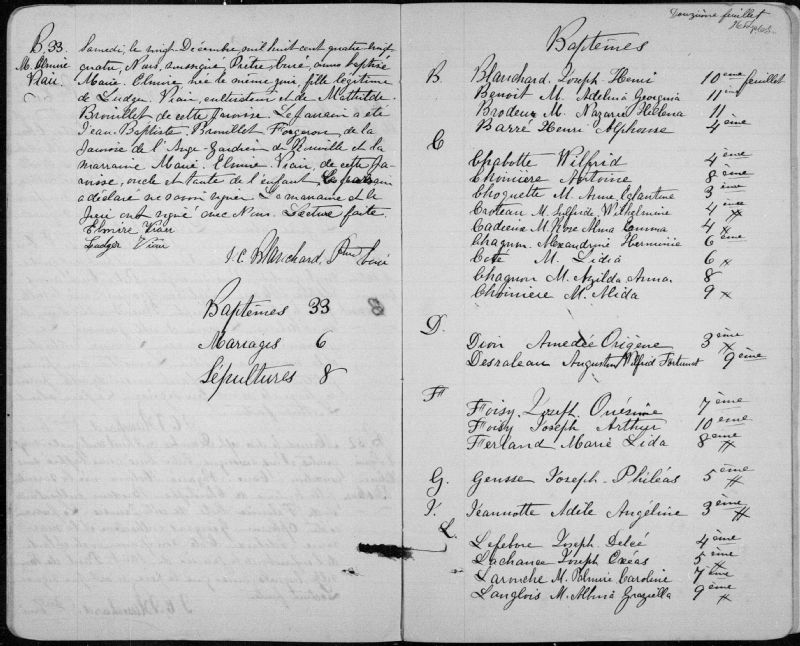 B. 33.
M. Elmire
Viau.
Samedi, le vingt-Décembre mil huit cent quatre-vingt
quatre, Nous, soussigné Prêtre, Curé, avons baptisé
Marie Elmire née le même jour, fille légitime
de Ludger Viau, cultivateur et de Mathilde
Brouillet de cette Paroisse. Le parrain a été
Jean Baptiste Brouillet Forgeron, de la
Paroisse de l'Ange-Gardien de Rouville et la
marraine Marie Elmire Viau, de cette Pa-
roisse, oncle et tante de l'enfant, Le parrain
a déclaré ne savoir signer. La marraine et le
père ont signé avec Nous. Lecture faite.
Elmire Viau
Ludger Viau
J. C. Blanchard, Ptre Curé
Baptêmes 33
Mariages 6
Sépultures 8
Douzième feuillet
Baptêmes
B Blanchard Joseph Henri 10ème feuillet
Benoit M. Adelina Georgina 11ème
Brodeur M. Nazarie Helena 11
Barré Henri Alphonse 4ème
C
Chabotte Wilfrid 4ème
Choinière Antoine 8ème
Choquette M. Anne Eglantine 3ème
Croteau M. Wilhelmine 4ème
Cadieux M. Rose Alma Emma 4
Chagnon Alexandrine Herminie 6ème
Coté M. Lidia 6
Chagnon M. Azilda Anna 8
Choinière M. Alida 9
D.
Dion Amedée Origène 3ème
Augustin Wilfrid Fortunat 9ème
F
Foisy Joseph Onésime 7ème
Foisy Joseph Arthur 10ème
Ferland Marie Lida 8ème
G. Joseph-Philéas 5ème
J. Jeannotte Adèle Angéline 3ème
L.
Lefebvre Joseph 4ème
Lachance Joseph 5ème
M. Palmire Caroline 7ème
Langlois M. Albina Graziella 9ème